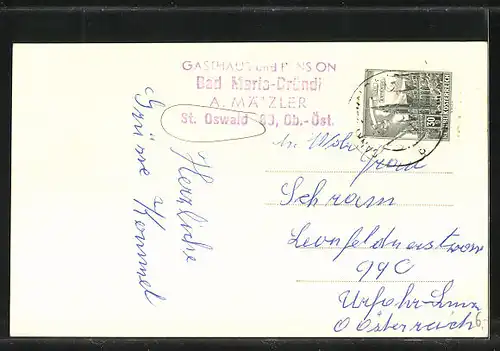 GASTHAUS und PENSION
Bad Maria-Bründl
A. MATZLER
St. Oswald 80, Ob.-Öst.
Herzliche
Grüße
Frau
Schram
Leonfeldnerstrasse
99C
Urfahr-Linz
Oösterreich
6.-